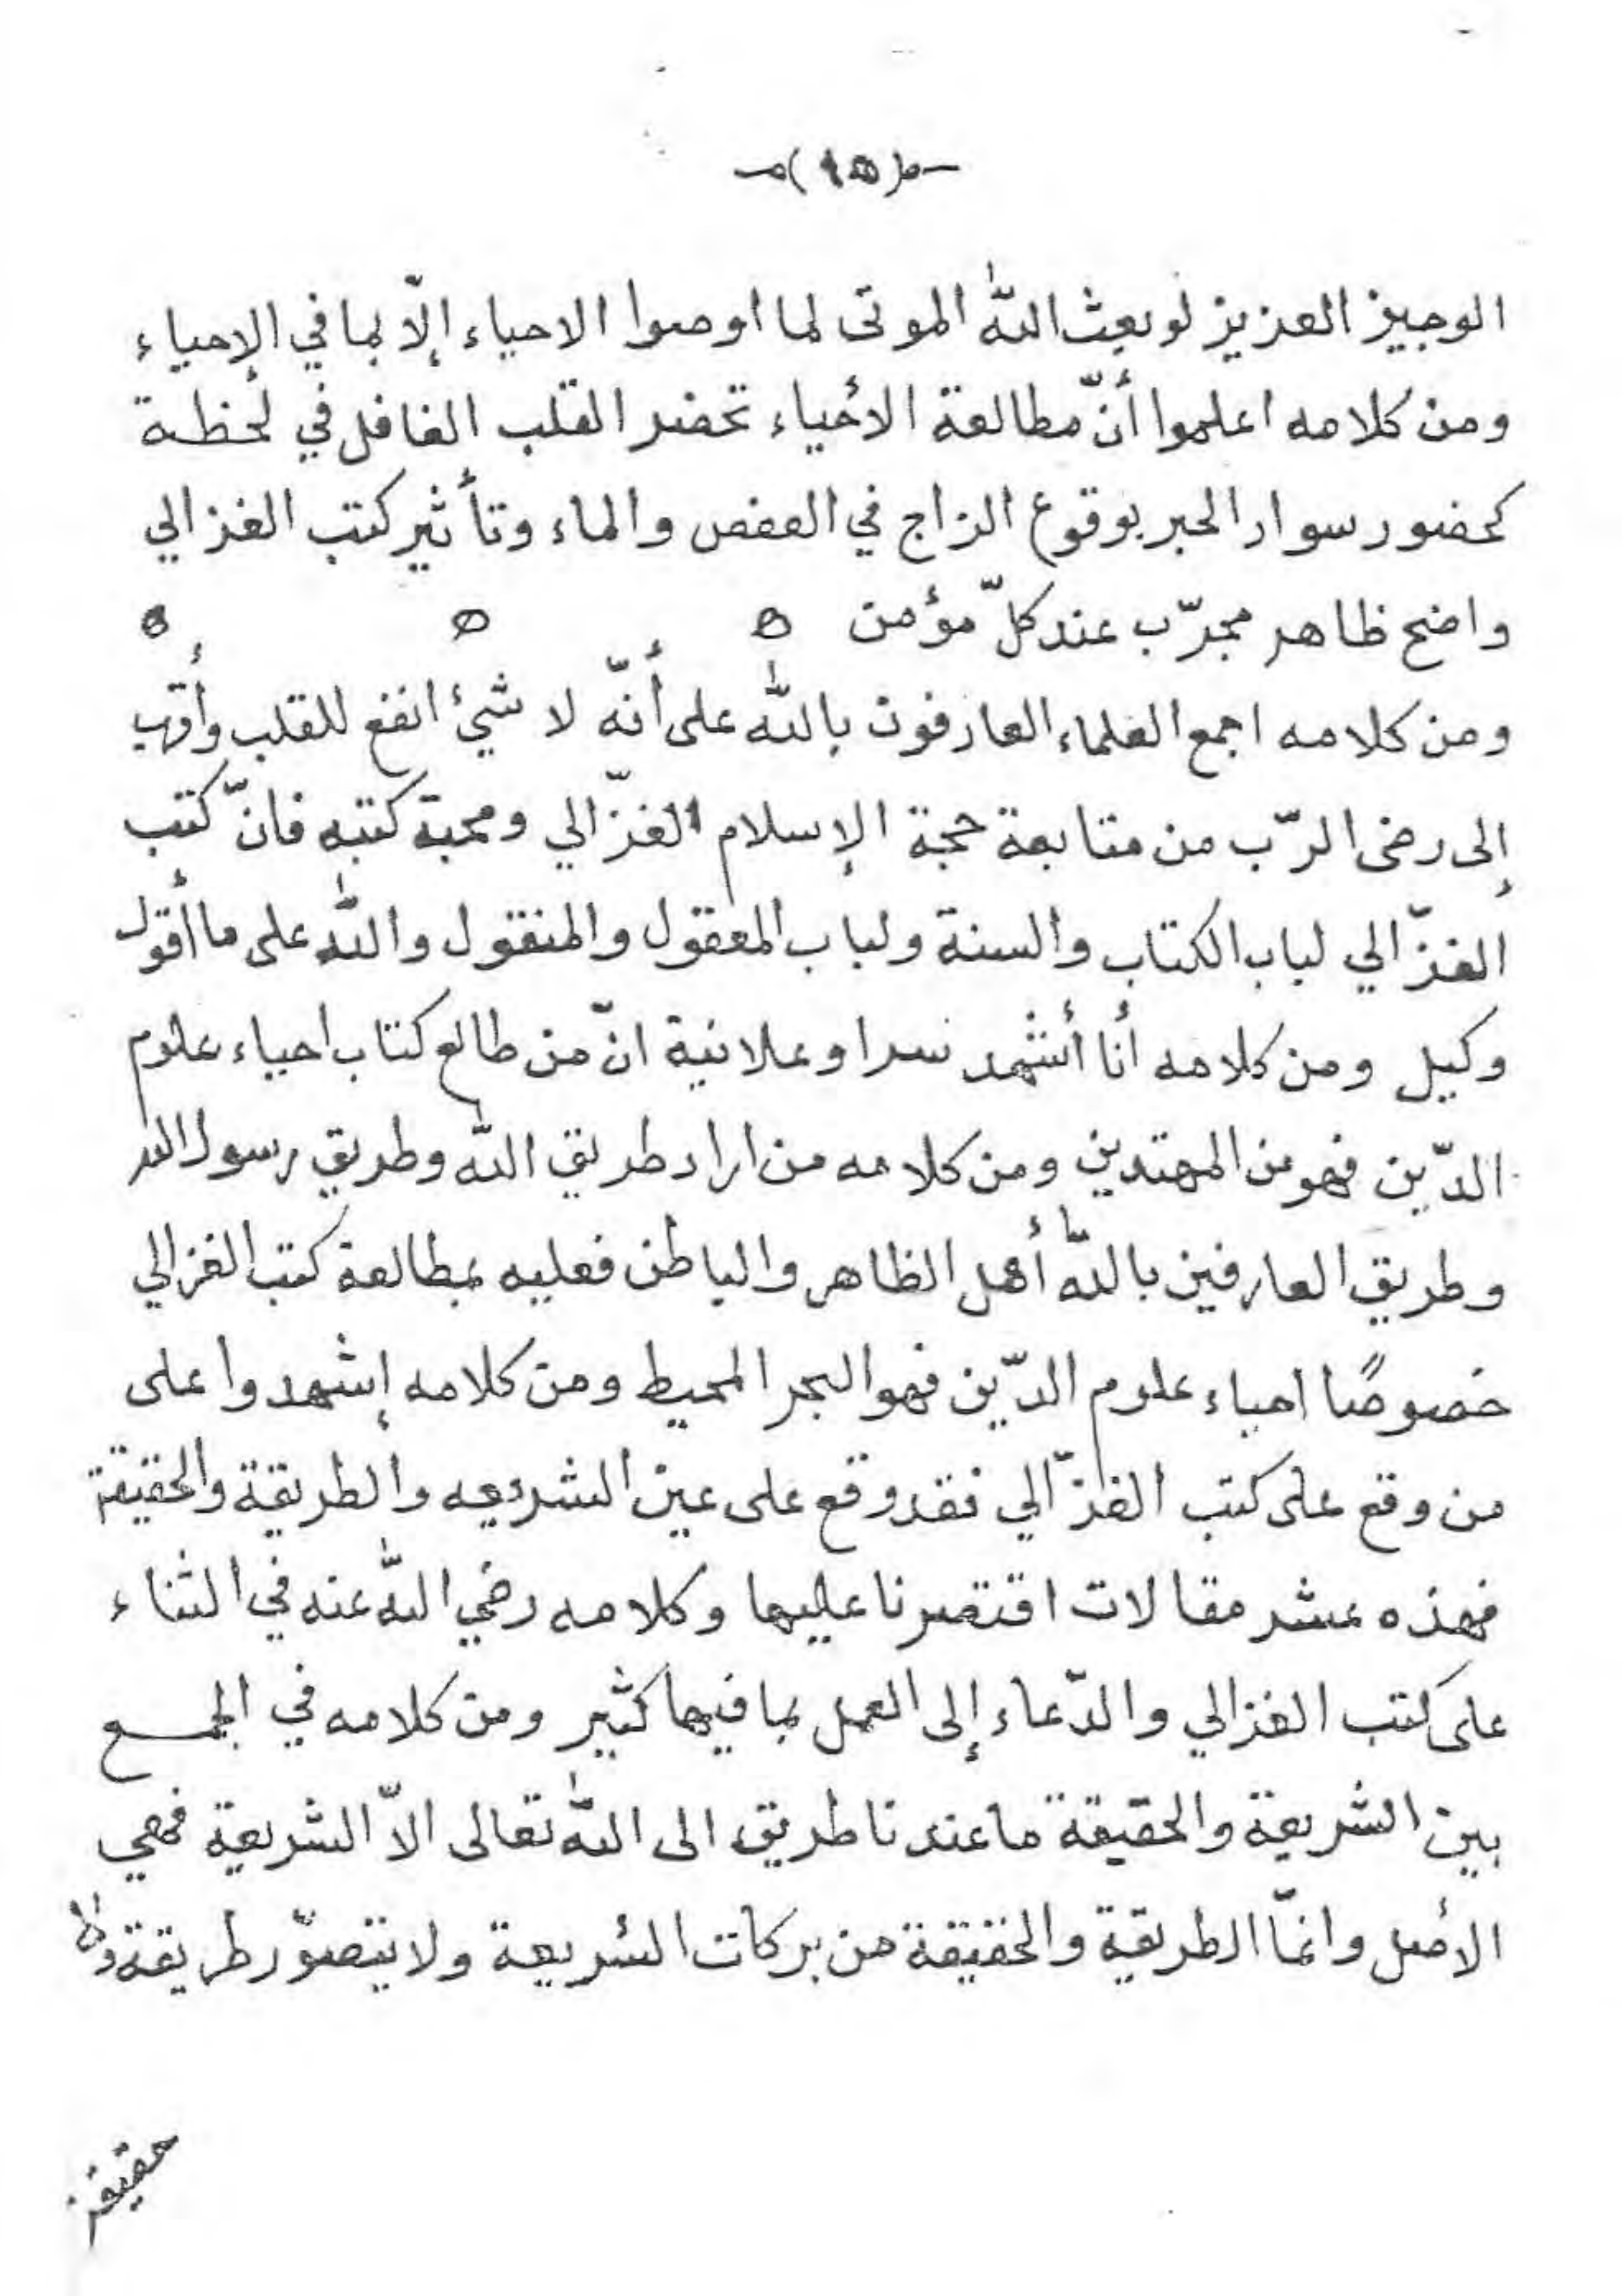 (١٥)
الوجيز العزيز لو بعث الله الموتى لما اوصوا الاحياء إلّا بما في الإحياء
ومن كلامه اعلموا أنّ مطالعة الأحياء تحضر القلب الغافل في لحظة
كحضور سواد الحبر بوقوع الزاج في العفص والماء وتأثير كتب الغزالي
واضح ظاهر مجرّب عند كلّ مؤمن ه ه ه
ومن كلامه اجمع العلماء العارفون بالله على أنّه لا شيئ انفع للقلب وأقرب
إلى رضى الرّب من متابعة حجة الإسلام الغزّالي ومحبة كتبه فانّ كتب
الغزّالي لباب الكتاب والسنة ولباب المعقول والمنقول والله على ما أقول
وكيل ومن كلامه أنا أشهد سرا وعلانية انّ من طالع كتاب احياء علوم
الدّين فهو من المهتدين ومن كلامه من اراد طريق الله وطريق رسول الله
وطريق العارفين بالله أهل الظاهر والباطن فعليه بمطالعة كتب الغزالي
خصوصًا احياء علوم الدّين فهو البحر المحيط ومن كلامه إشهدوا على
من وقع على كتب الغزّالي فقد وقع على عين الشريعه والطريقة والحقيقة
فهذه عشر مقالات اقتصرنا عليها وكلامه رضي الله عنه في الثناء
على كتب الغزالي والدّعاء إلى العمل بما فيها كثير ومن كلامه في الجمع
بين الشريعة والحقيقة ما عندنا طريق الى الله تعالى الاّ الشريعة فهي
الأصل وانمّا الطريقة والحقيقة من بركات الشريعة ولا يتصوّر طريقة ولا
حقيقة